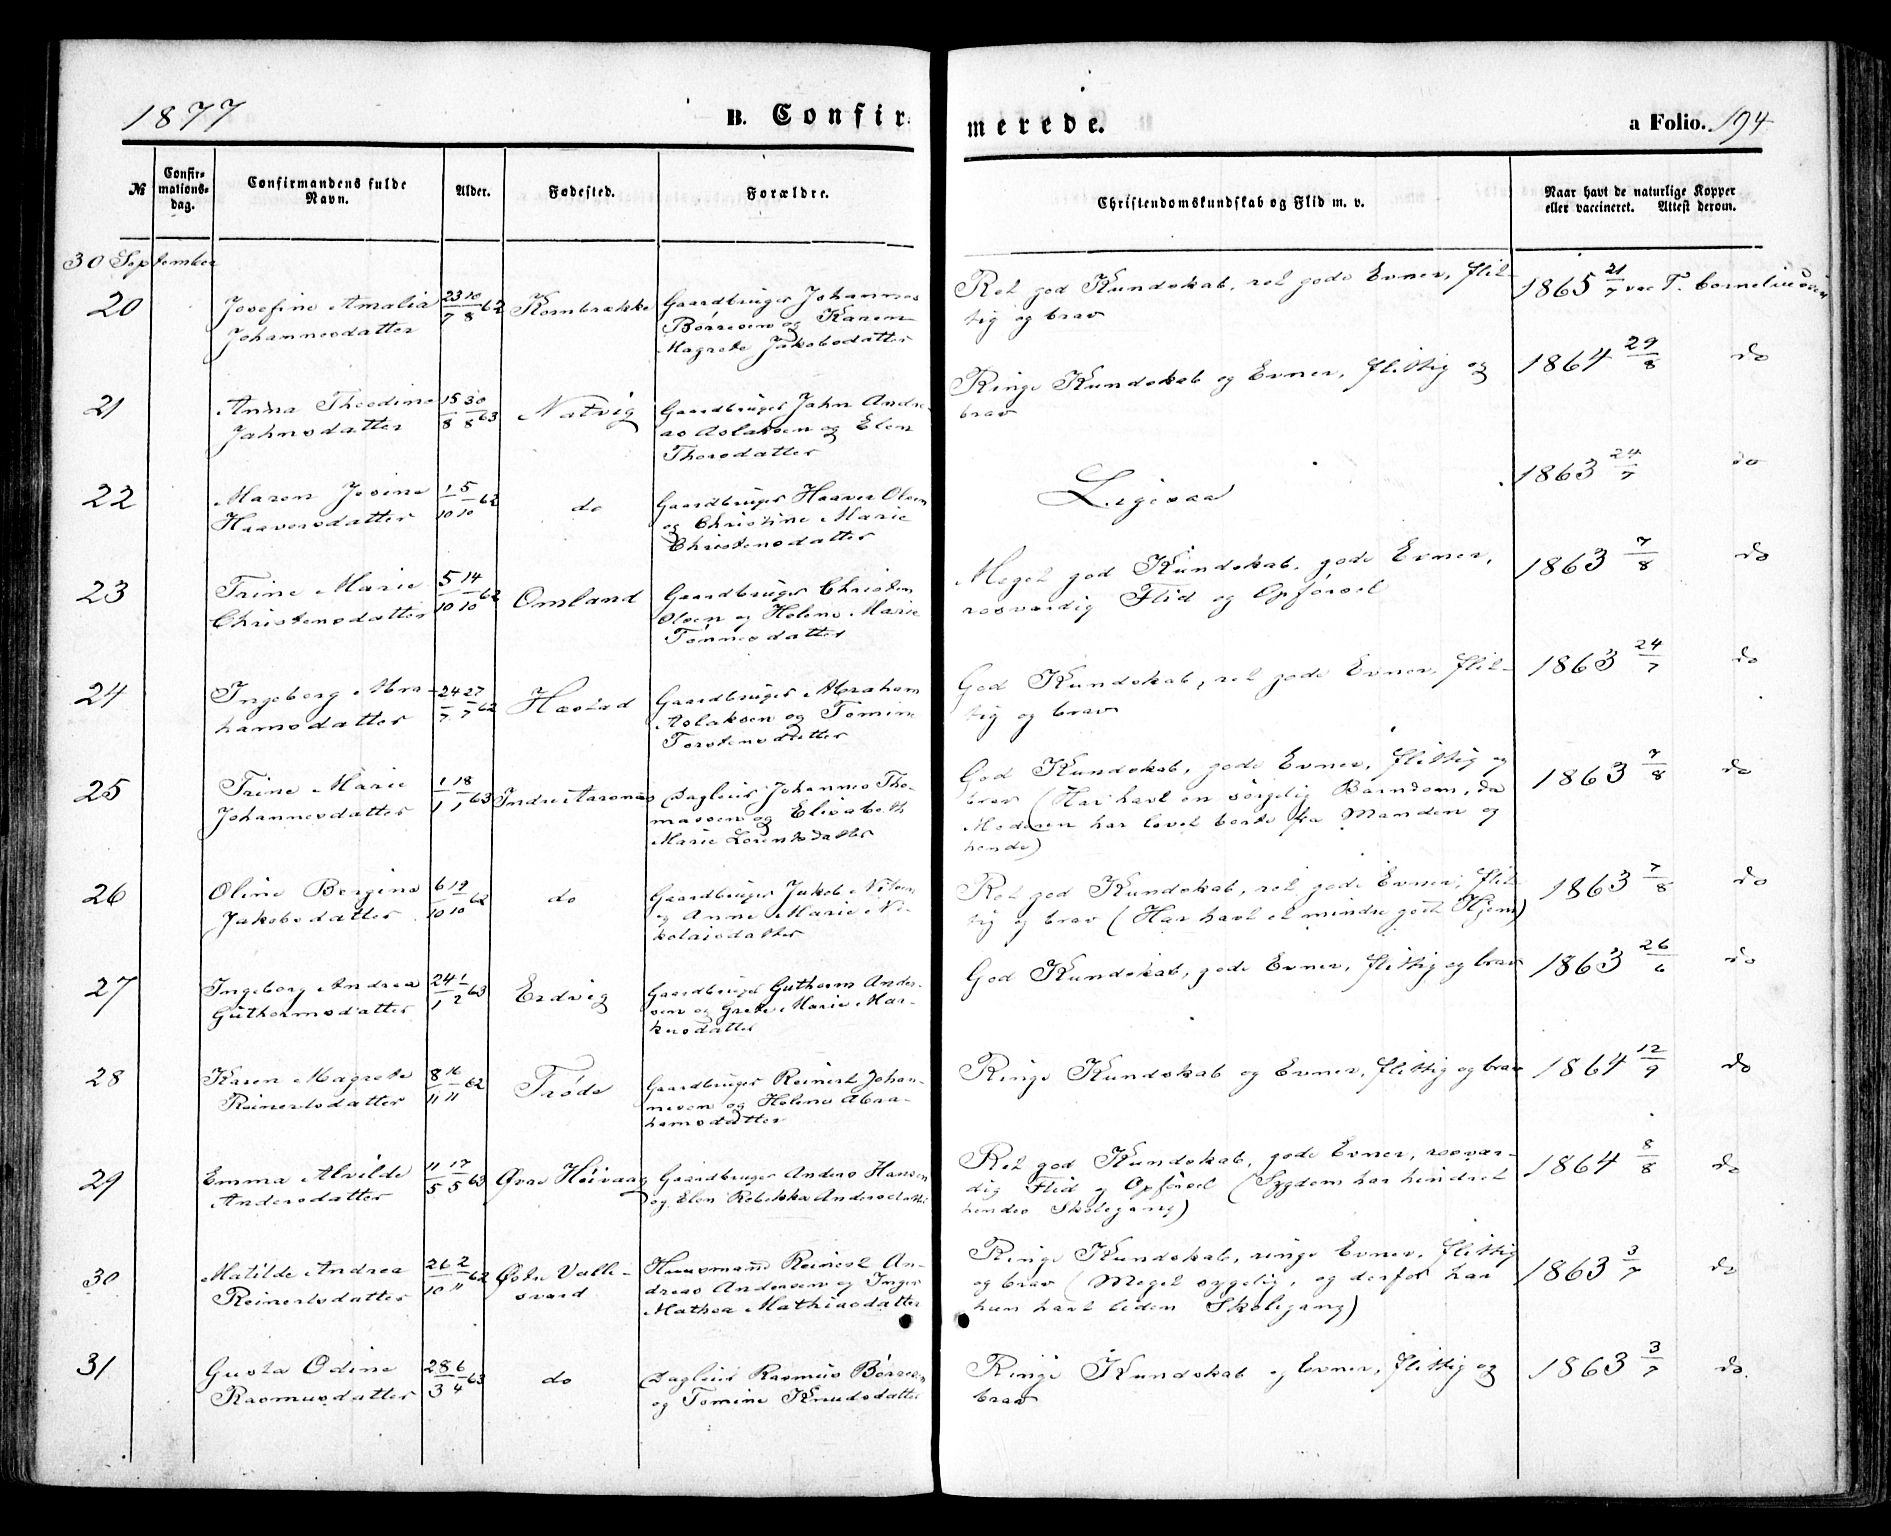 1877
B. Confirmerede.
a Folio. 194
№
Confirmationsdag.
Confirmandens fulde Navn.
Alder.
Fødested.
Forældre.
Christendomskundskab og Flid m. v.
Naar havt de naturlige Kopper eller vaccineret. Attest derom.
30 September
20 Josefine Amalia Johannesdatter 23/7 10/8 62 Kornbrække Gaardbruger Johannes Børresen og Karen Magrete Jakobsdatter
Ret god Kundskab, ret gode Evner, flittig og brav
1865 21/7 vac T. Cornelius
21 Anna Theodine Jahnsdatter 15/8 30/8 63 Natvig Gaardbruger Jahn Andreas Aslaksen og Elen Thorsdatter
Ringe Kundskab og Evner, flittig og brav
1864 29/8 do
22 Maren Josine Haaversdatter 1/10 5/10 62 do Gaardbruger Haaver Olsen og Christine Marie Christensdatter
Ligesaa
1863 24/7 do
23 Trine Marie Christensdatter 5/10 14/10 62 Omland Gaardbruger Christen Olsen og Helene Marie Tønnesdatter
Meget god Kundskab, gode Evner, rosværdig Flid og Opførsel
1863 7/8 do
24 Ingeborg Abrahamsdatter 24/7 27/7 62 Hæstad Gaardbruger Abraham Aslaksen og Tomine Torstensdatter
God Kundskab, ret gode Evner, flittig og brav
1863 24/7 do
25 Trine Marie Johannesdatter 1/1 18/1 63 Indre Aaronæs Dagleier Johannes Thomassen og Elisabeth Marie Lorentsdatter
God Kundskab, gode Evner, flittig og brav (Har havt en sørgelig Barndom, da Moderen har levet borte fra Manden og hende)
1863 7/8 do
26 Oline Bergine Jakobsdatter 6/10 19/10 62 do Gaardbruger Jakob Nilsen og Anne Marie Nikolaisdatter
Ret god Kundskab, ret gode Evner, flittig og brav (Har havt et mindre godt Hjem)
1863 7/8 do
27 Ingeborg Andrea Guthormsdatter 24/1 1/2 63 Erdvig Gaardbruger Guthorm Andersen og Grete Marie Markusdatter
God Kundskab, gode Evner, flittig og brav
1863 26/6 do
28 Karen Magrete Reinertsdatter 8/11 16/11 62 Trøde Gaardbruger Reinert Johannesen og Helene Abrahamsdatter
Ringe Kundskab og Evner, flittig og brav
1864 12/9 do
29 Emma Alvilde Andersdatter 11/5 17/5 63 Øvre Høivaag Gaardbruger Anders Hansen og Elen Rebekka Andersdatter
Ret god Kundskab, gode Evner, rosværdig Flid og Opførsel (Sygdom har hindret hendes Skolegang)
1864 8/8 do
30 Matilde Andrea Reinertsdatter 26/10 2/11 62 Østre Vallesværd Huusmand Reinert Andreas Andersen og Inger Mathea Mathiasdatter
Ringe Kundskab, ringe Evner, flittig og brav (Meget sygelig, og derfor har hun havt liden Skolegang)
1863 3/7 do
31 Gusta Odine Rasmusdatter 28/3 6/4 63 do Dagleier Rasmus Børresen og Tomine Knudsdatter
Ringe Kundskab og Evner, flittig og brav
1863 3/7 do.